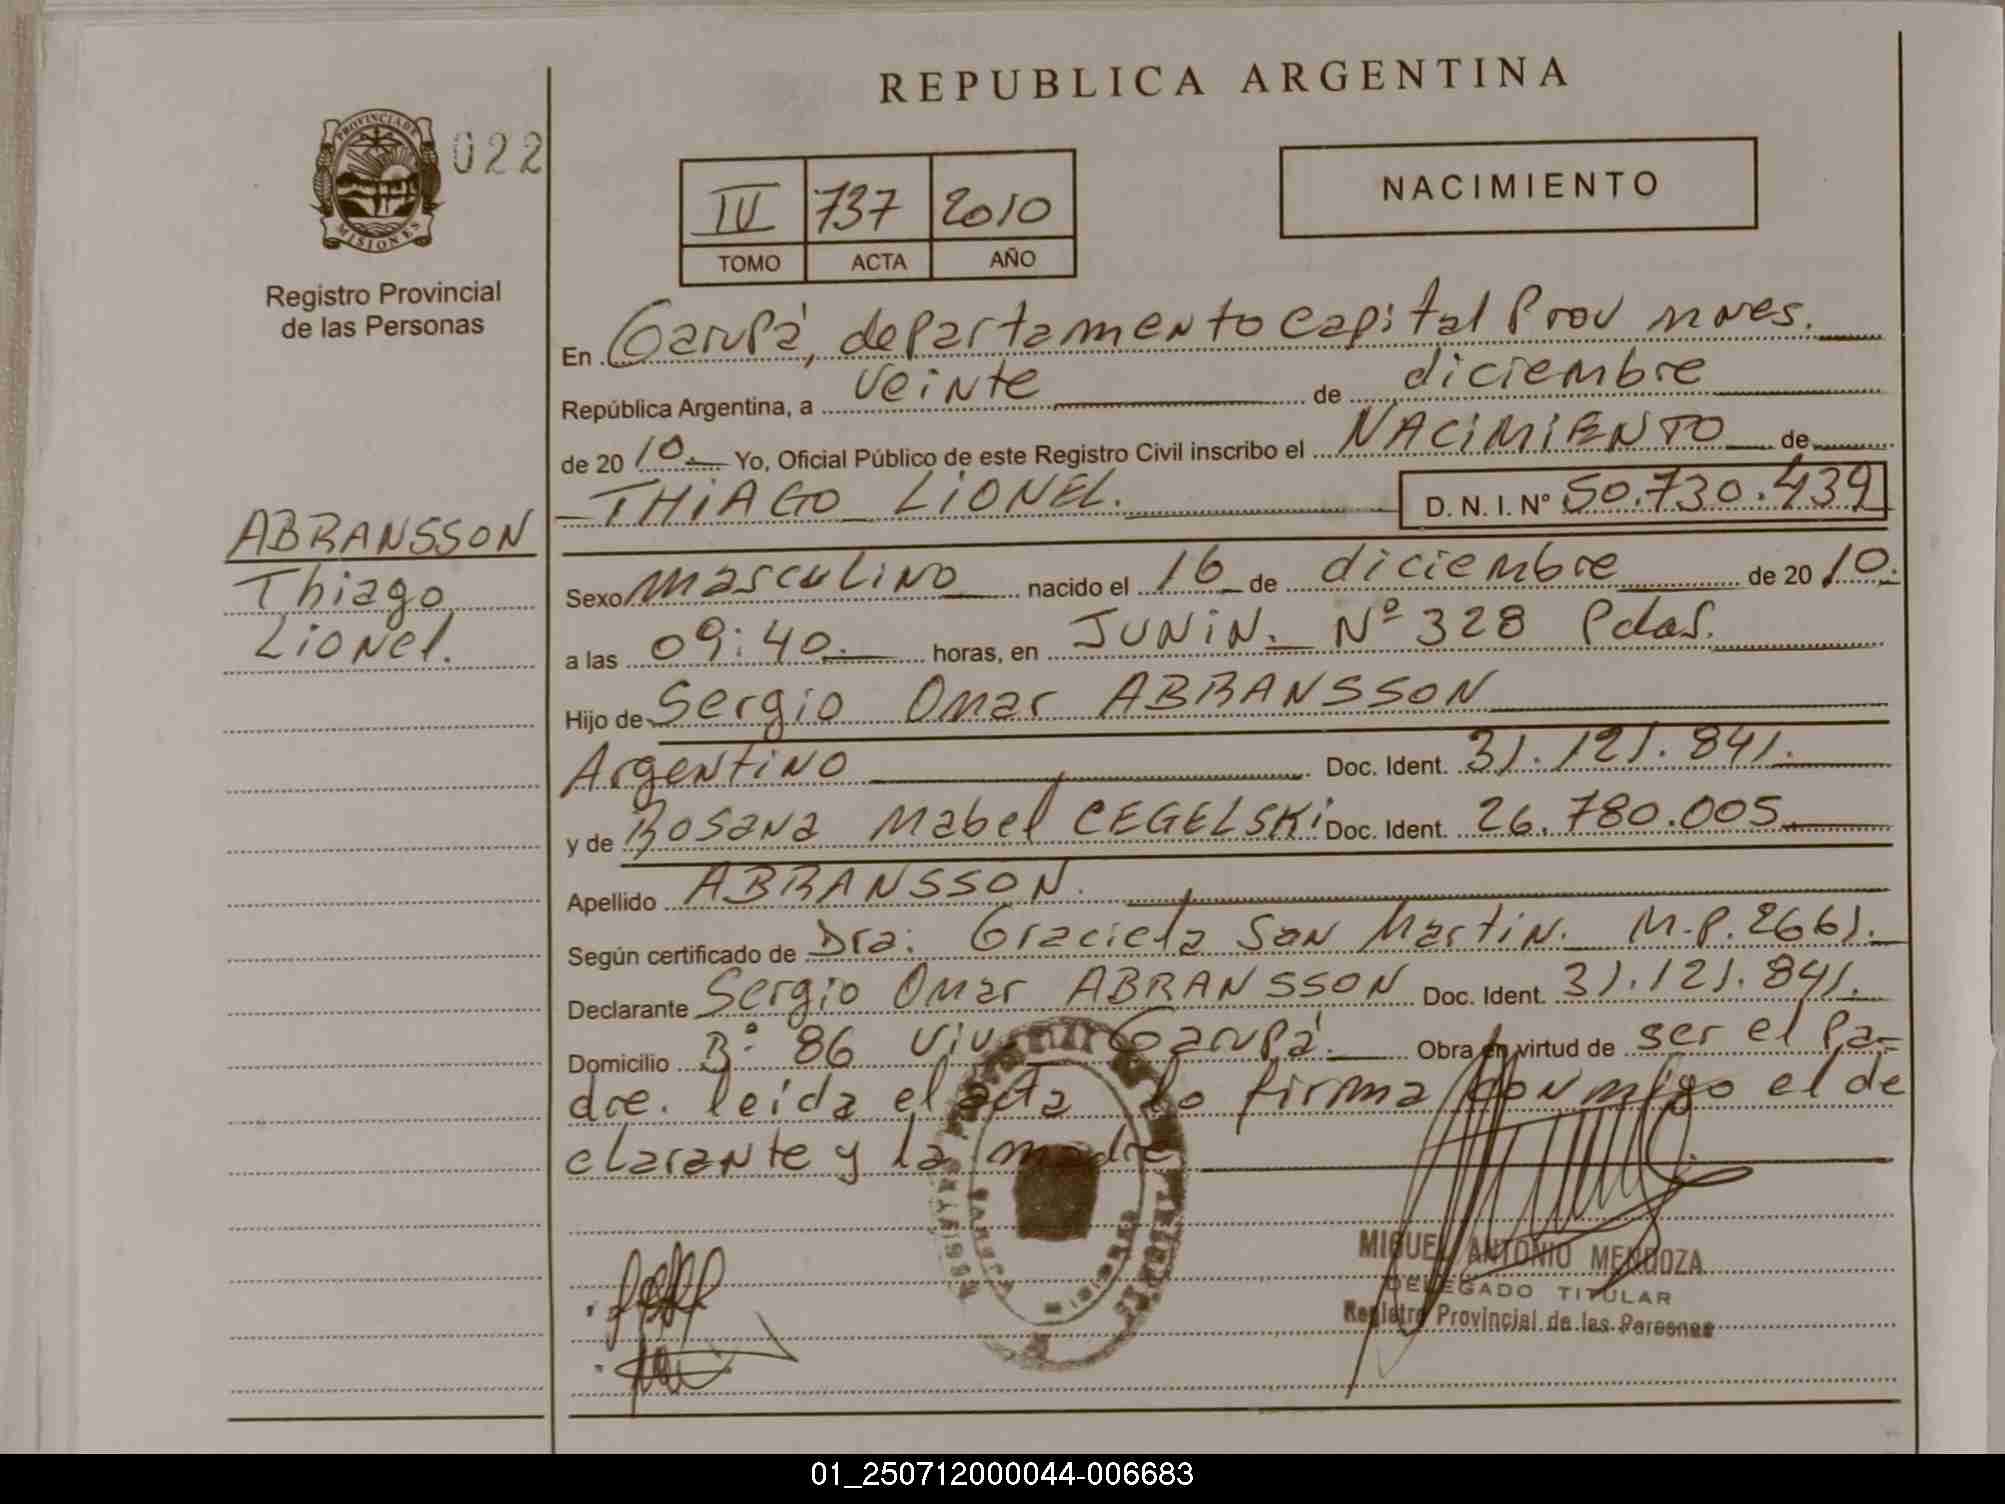 REPUBLICA ARGENTINA
PROVINCIA DE MISIONES
022
Registro Provincial
de las Personas
IV 737 2010
TOMO ACTA AÑO
NACIMIENTO
En Garupá, departamento Capital Prov Mnes.
República Argentina, a veinte de diciembre
de 2010. Yo, Oficial Público de este Registro Civil inscribo el NACIMIENTO de
THIAGO LIONEL. D. N. I. Nº 50.730.439
ABRANSSON
Thiago
Lionel.
Sexo masculino nacido el 16 de diciembre de 2010.
a las 09:40. horas, en JUNIN. Nº 328 Pdas.
Hijo de Sergio Omar ABRANSSON
Argentino Doc. Ident. 31.121.841.
y de Rosana Mabel CEGELSKi Doc. Ident. 26.780.005
Apellido ABRANSSON.
Según certificado de Dra: Graciela San Martin. M.P. 2661.
Declarante Sergio Omar ABRANSSON Doc. Ident. 31.121.841.
Domicilio Bº 86 Viv Garupá. Obra en virtud de ser el pa-
dre. leída el acta lo firma conmigo el de
clarante y la madre
MIGUEL ANTONIO MENDOZA
DELEGADO TITULAR
Registro Provincial de las Personas
01_250712000044-006683